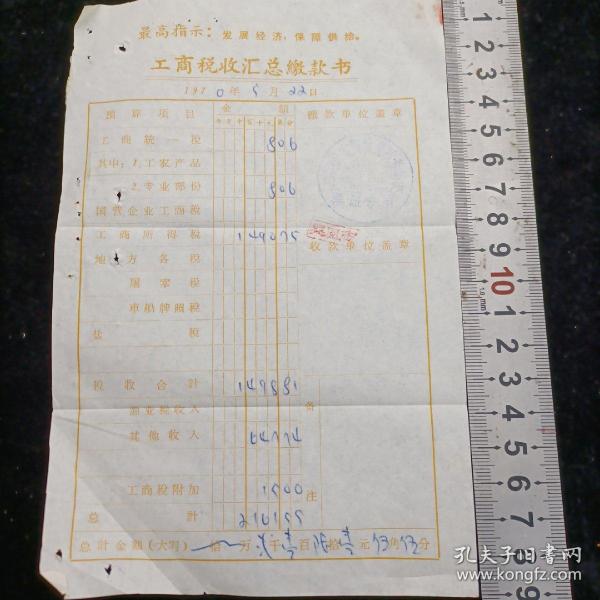 最高指示：发展经济，保障供给。
工商税收汇总缴款书
1970年5月22日
预算项目 金額 缴款单位盖章
工商統一税 806
其中：1.工农产品
2.专业部份 806
国营企业工商税
工商所得税 149075
收款单位盖章
地方各税
屠宰税
車船牌照税
盐税
税收合計 149881
渔业税收入
其他收入
工商税附加 1500
备注
总計 210155
总計金额(大写) 拾万贰千壹百 拾壹元 角 分
孔夫子旧书网
www.kongfz.com
1 2 3 4 5 6 7 8 9 10 1 2 3 4 5 6 7
1.0mm